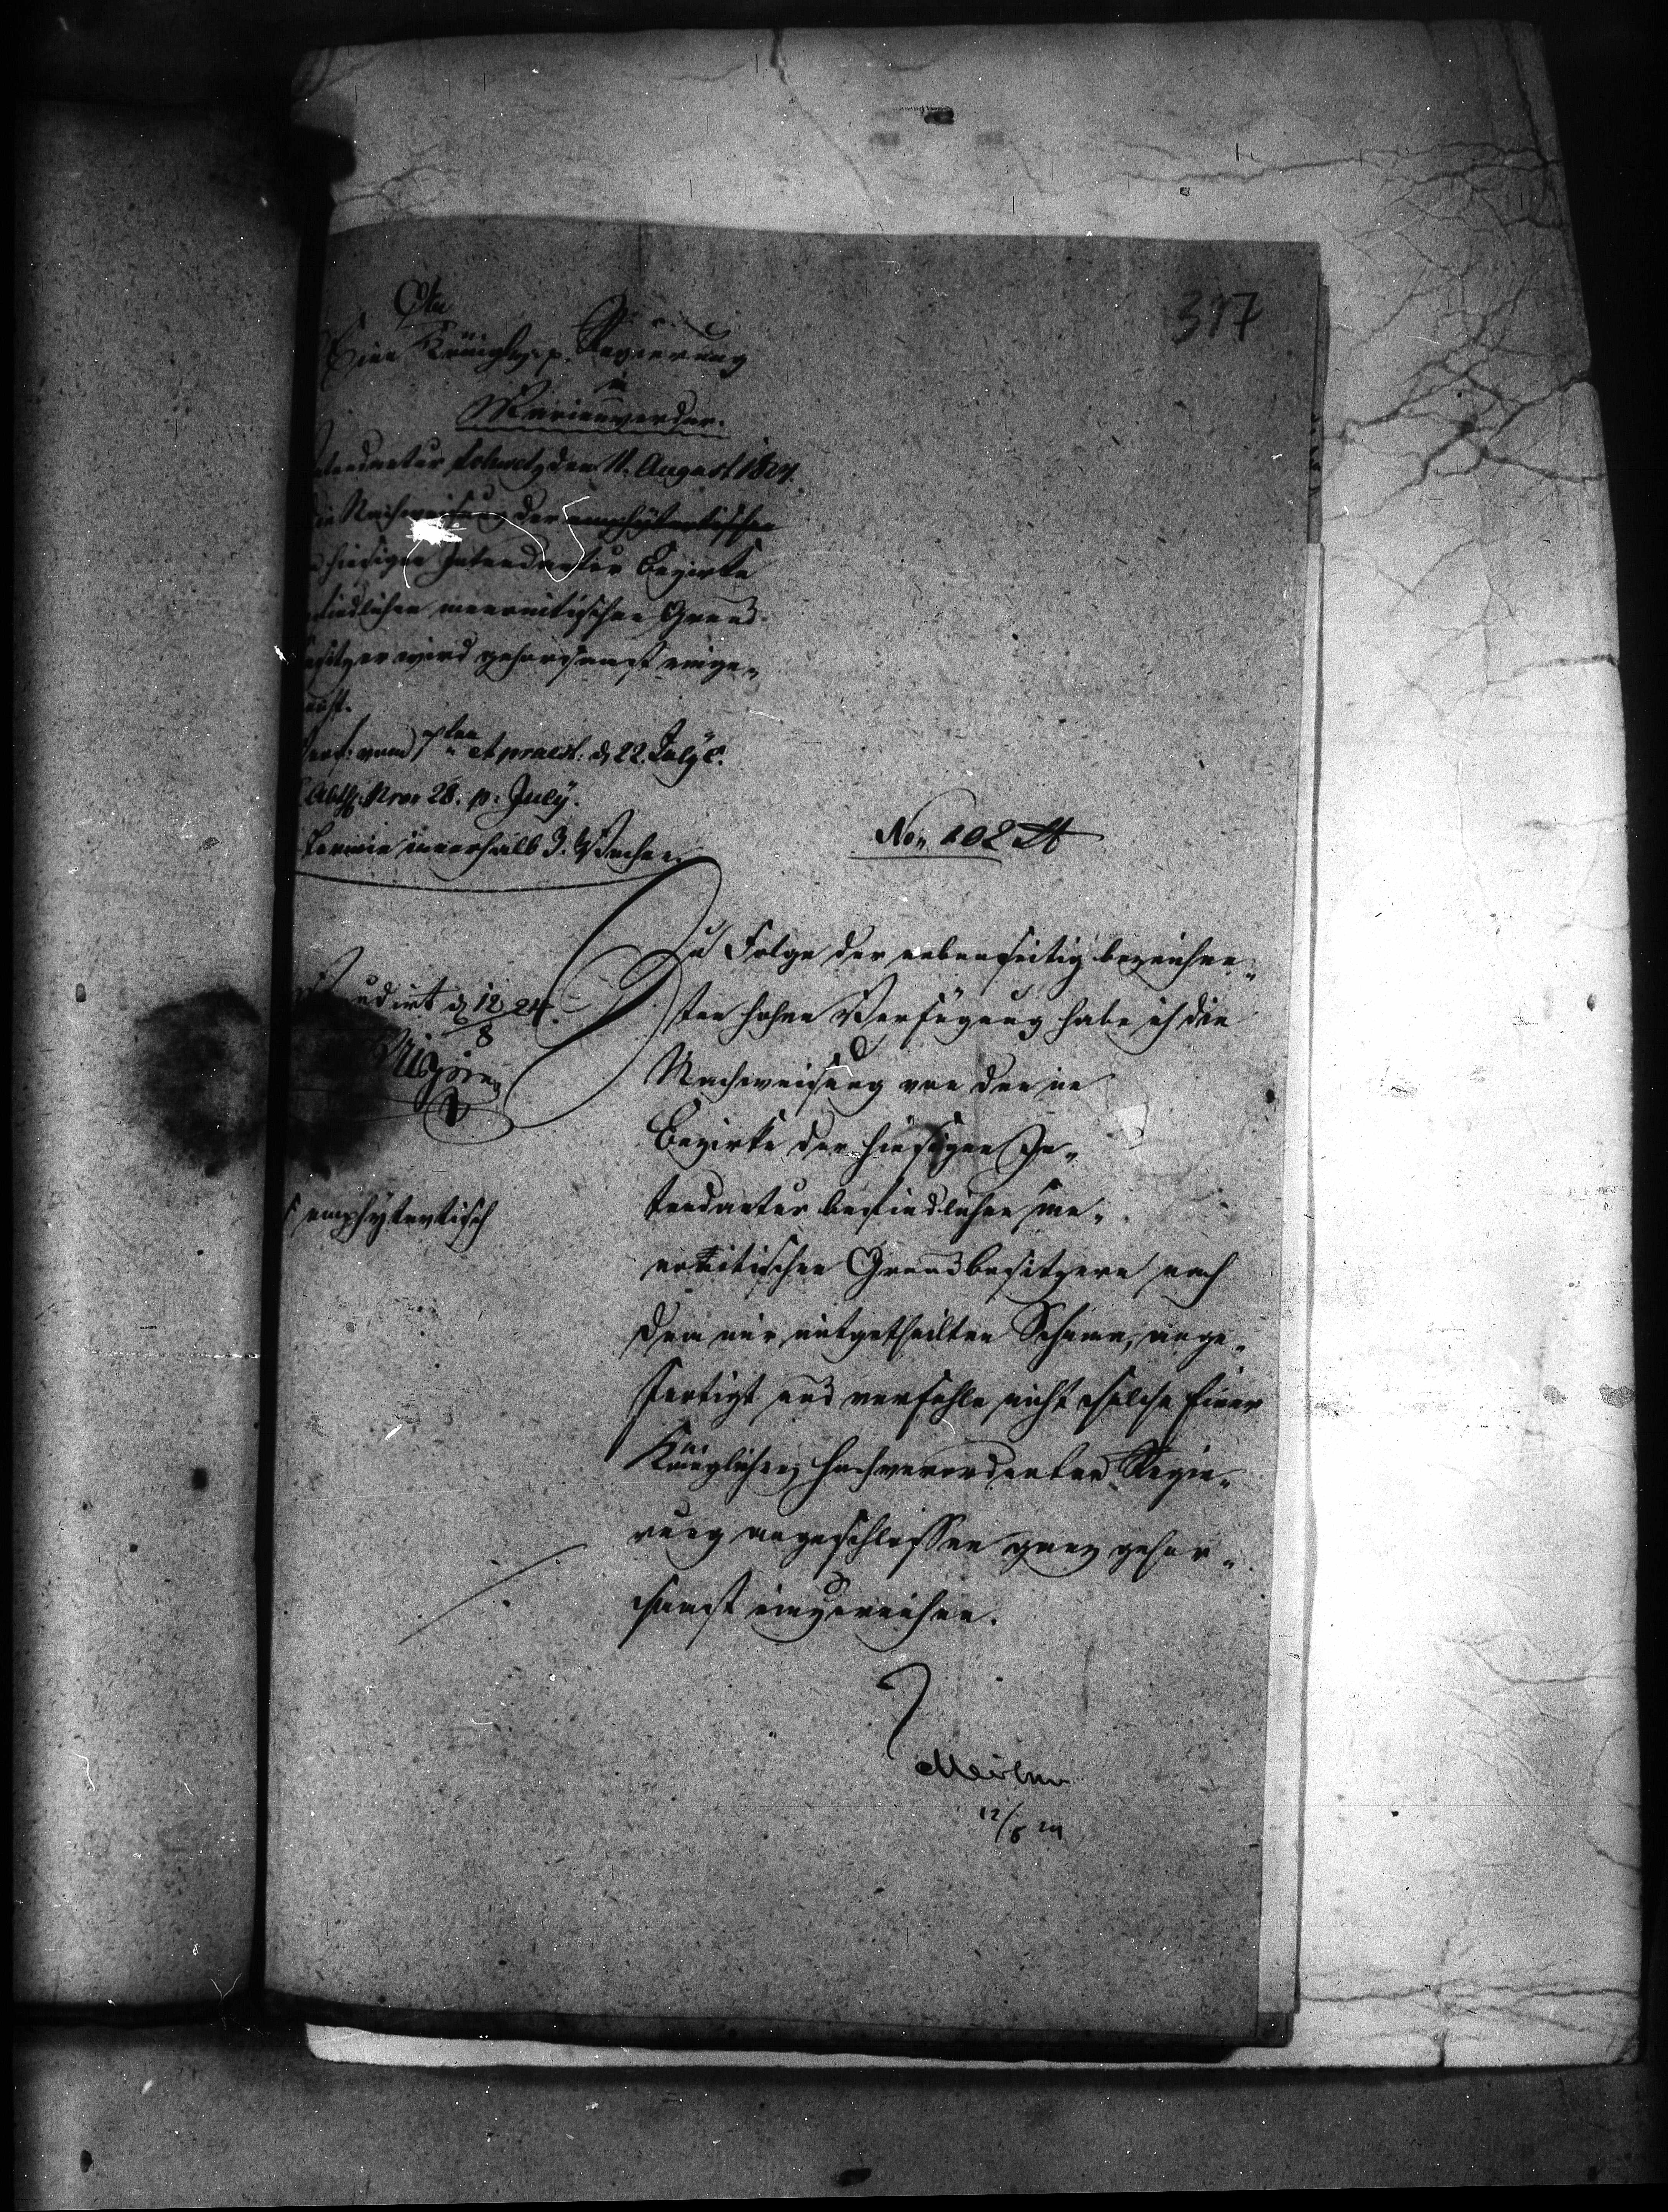 317
An
Eine Königl. p. Regierung
in
Marienwerder.
Intendantur den 11. August 1824.
die Nachweisung der emphyteutischen
hiesigen Intendantur Bezirke
befindlichen mennonitischen Grund
besitzer wird gehorsamst einge„
reicht.
Verf: vom 7ten et praest: d 22. July c.
Abth. Nro. 28. p. July.
Termin innerhalb 3. Wochen.
No„ 102
Zu Folge der nebenseitig bezeichne„
ten hohen Verfügung habe ich die
Nachweisung von den im
Bezirke der hiesigen In„
tendantur befindlichen me„
nonitischen Grundbesitzern nach
dem mir mitgetheilten Schema, ange„
fertigt und verfehle nicht solche Einer
Königlichen Hochverordneten Regie„
rung angeschlossen ganz gehor„
samst einzureichen.
mundirt d 12/8 24.
emphyteutisch
12/8 24